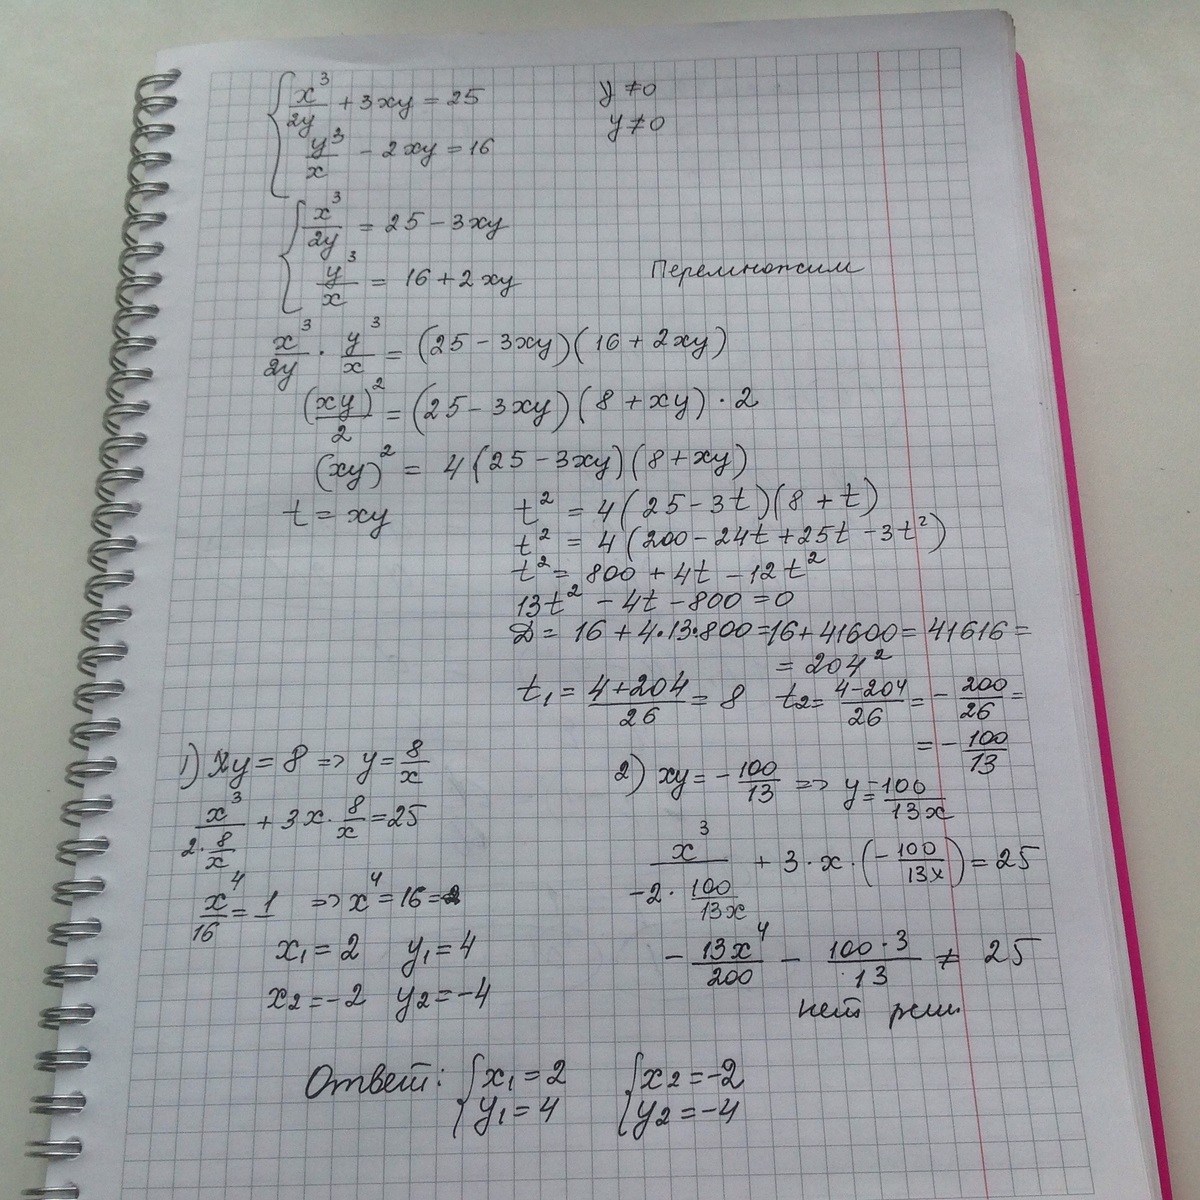 x³/2y + 3xy = 25    y ≠ 0
y³/x - 2xy = 16    y ≠ 0
x³/2y = 25 - 3xy
y³/x = 16 + 2xy    Перемножим
x³/2y · y³/x = (25 - 3xy)(16 + 2xy)
(xy)²/2 = (25 - 3xy)(8 + xy) · 2
(xy)² = 4(25 - 3xy)(8 + xy)
t = xy    t² = 4(25 - 3t)(8 + t)
t² = 4(200 - 24t + 25t - 3t²)
t² = 800 + 4t - 12t²
13t² - 4t - 800 = 0
D = 16 + 4·13·800 = 16 + 41600 = 41616 =
= 204²
t₁ = (4+204)/26 = 8    t₂ = (4-204)/26 = -200/26 =
= -100/13
1) xy = 8 => y = 8/x
x³/(2·8/x) + 3x·8/x = 25
x⁴/16 = 1 => x⁴ = 16 = 2
x₁ = 2    y₁ = 4
x₂ = -2    y₂ = -4
2) xy = -100/13 => y = 100/13x
x³/(-2·100/13x) + 3·x·(-100/13x) = 25
-13x⁴/200 - 100·3/13 ≠ 25
нет реш.
Ответ: x₁ = 2    x₂ = -2
y₁ = 4    y₂ = -4